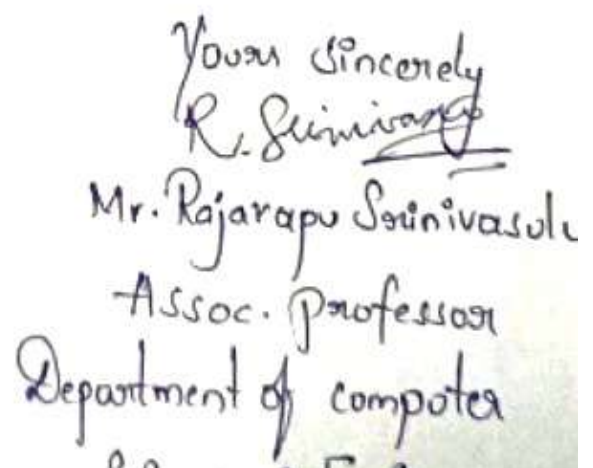 Yours sincerely
R. Srinivas
Mr. Rajarapu Srinivasulu
Assoc. professor
Department of computer